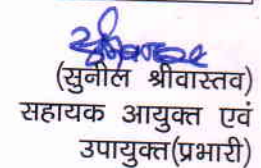 (सुनील श्रीवास्तव)
सहायक आयुक्त एवं
उपायुक्त(प्रभारी)